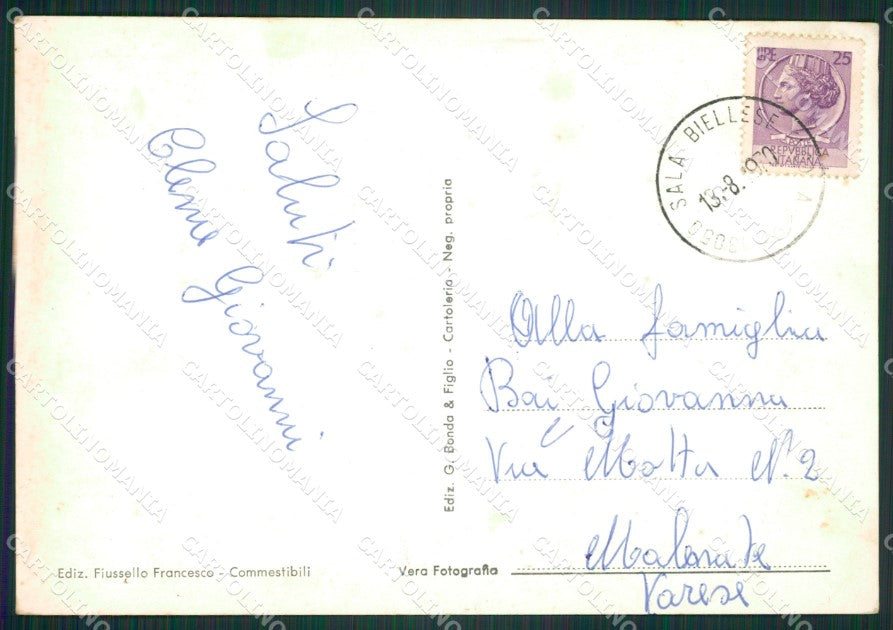 Saluti
Clema Giovanni
Ediz. G. Bonda & Figlio - Cartoleria - Neg. propria
Ediz. Fiussello Francesco - Commestibili
Vera Fotografia
LIRE 25
REPVBBLICA
ITALIANA
SALA BIELLESE
13.-8.1970
13050
Alla famiglia
Bai Giovanna
Via Motta N. 2
Malnate
Varese
CARTOLINOMANIA